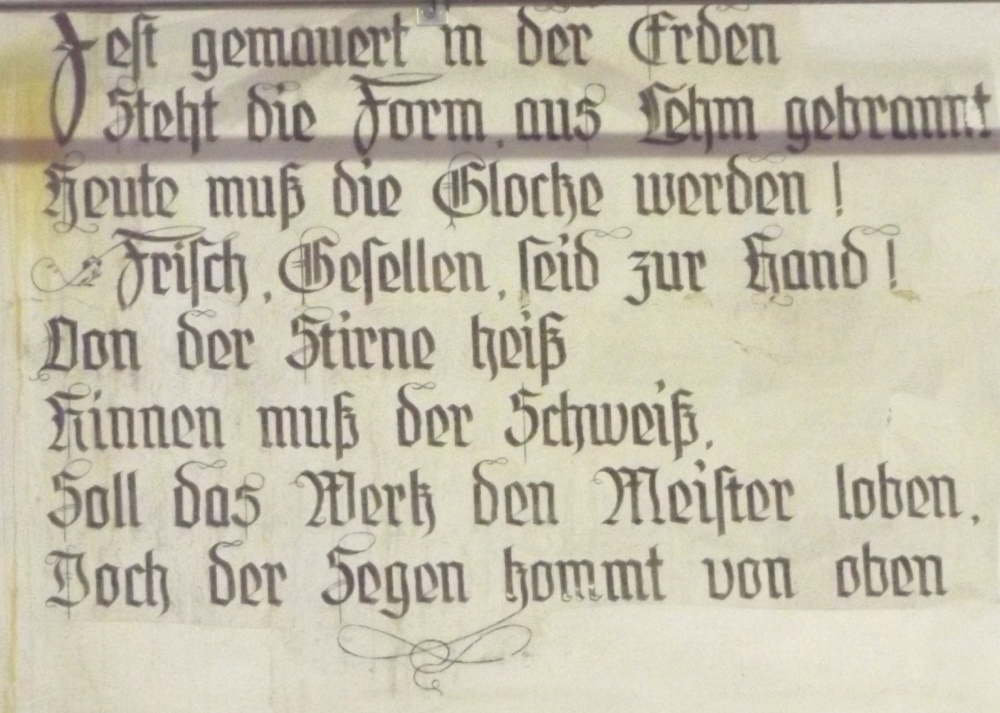 Fest gemauert in der Erden
Steht die Form, aus Lehm gebrannt
Heute muß die Glocke werden!
Frisch, Gesellen, seid zur Hand!
Von der Stirne heiß
Rinnen muß der Schweiß,
Soll das Werk den Meister loben,
Doch der Segen kommt von oben